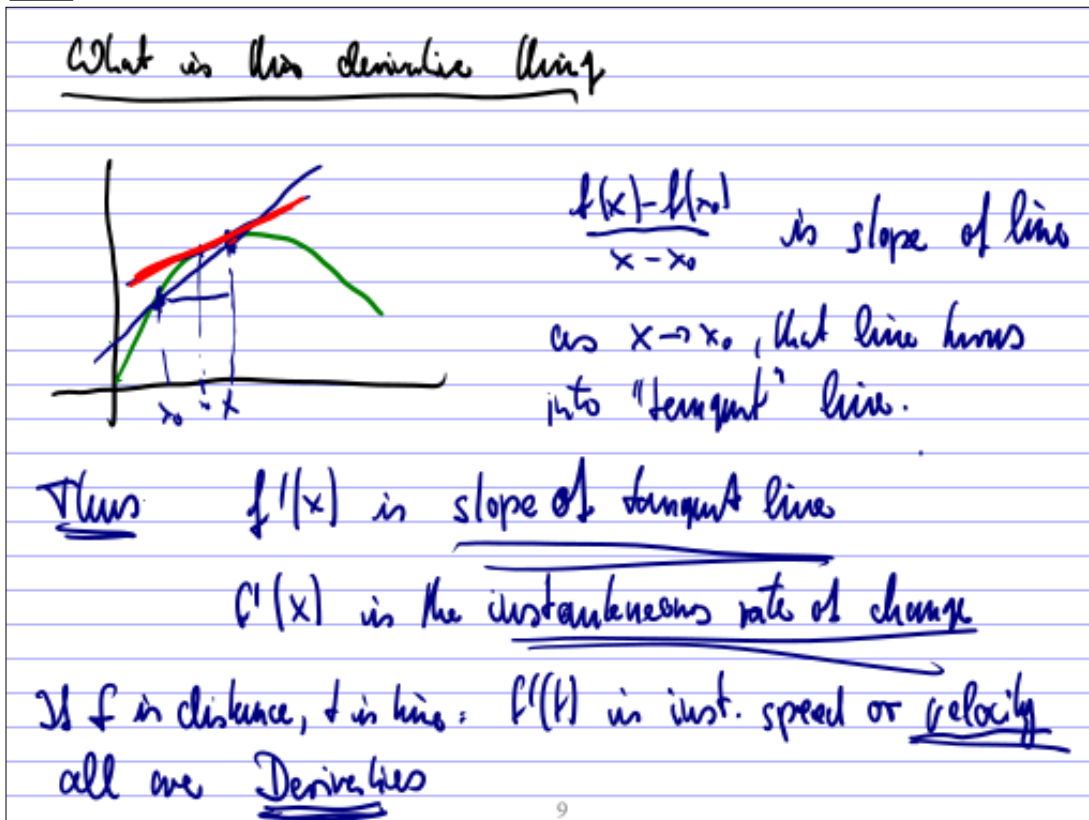 What is this derivative thing
f(x)-f(x₀)
x-x₀
is slope of line
as x→x₀, that line turns
into "tangent" line.
x₀ x
Thus f'(x) is slope of tangent line
f'(x) is the instantaneous rate of change
If f is distance, t is time: f'(t) is inst. speed or velocity
all are Derivatives
9